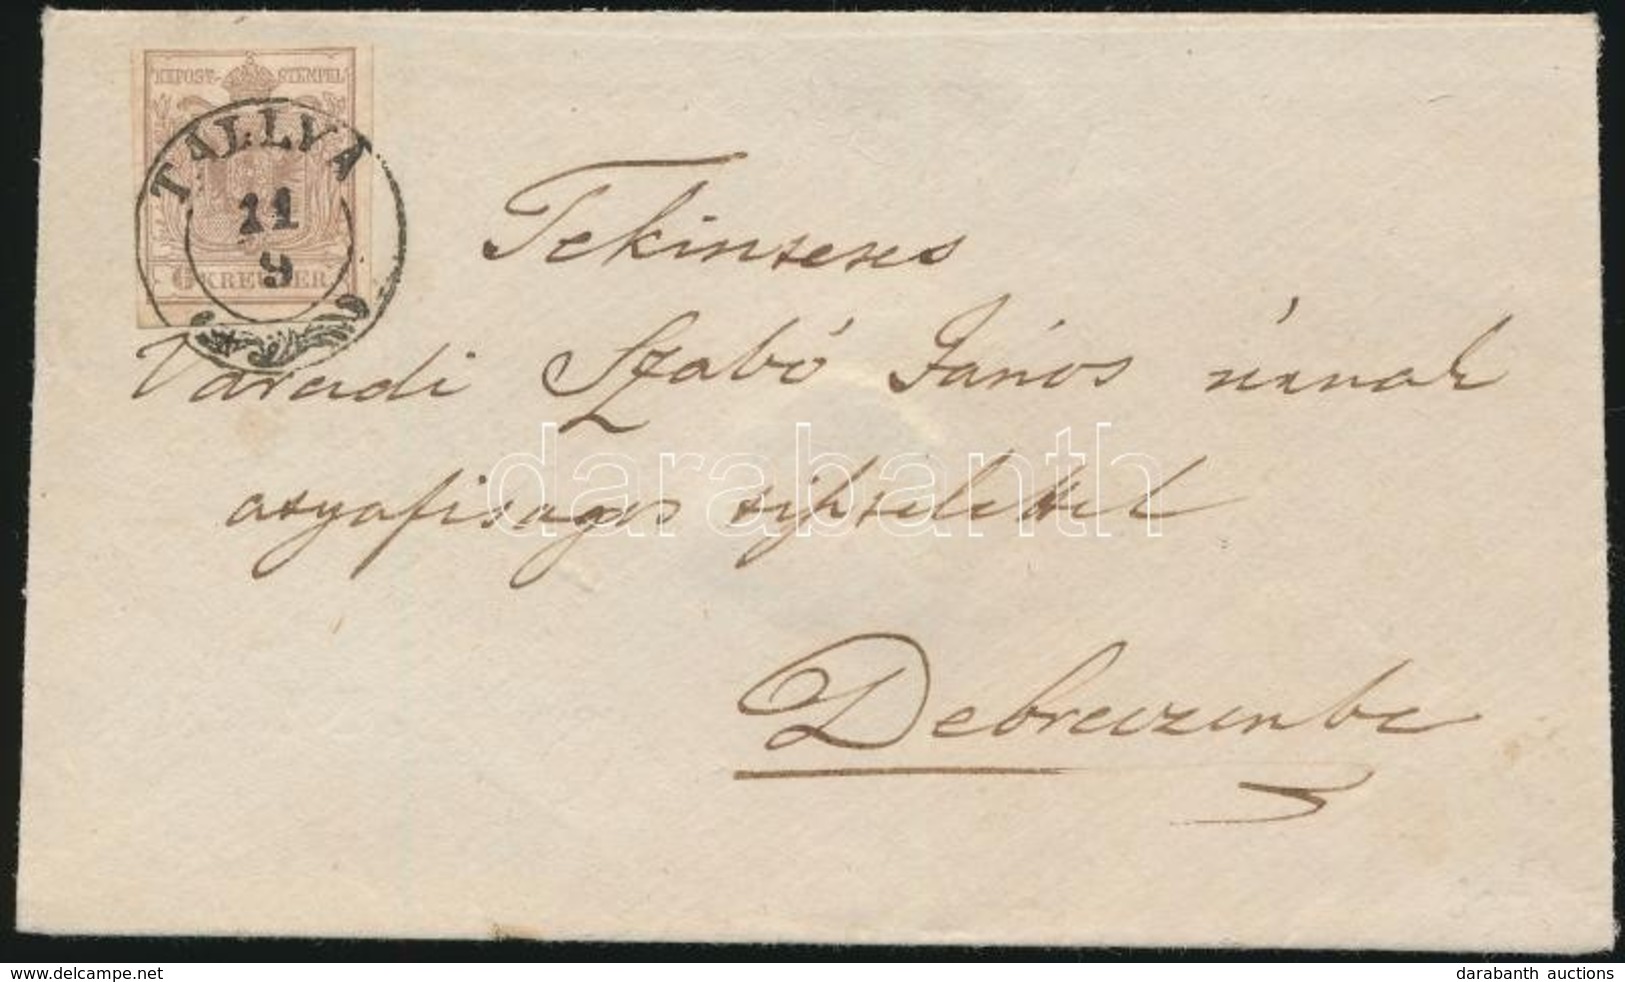 KKPOST-STEMPEL
6 KREUZER
TÁLLYA
11
9
Tekintetes
Váradi Szabó János úrnak
atyafiságos tisztelettel
Debreczenbe
darabanth
© darabanth auctions